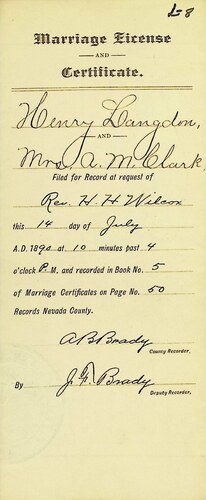 L8
Marriage License
AND
Certificate.
Henry Langdon,
AND
Mrs. A. M. Clark
Filed for Record at request of
Rev. H. H. Wilcox
this 14 day of July
A.D. 1890 at 10 minutes past 4
o'clock P. M, and recorded in Book No. 5
of Marriage Certificates on Page No. 50
Records Nevada County.
A B Brady
County Recorder,
By J. F. Brady
Deputy Recorder,